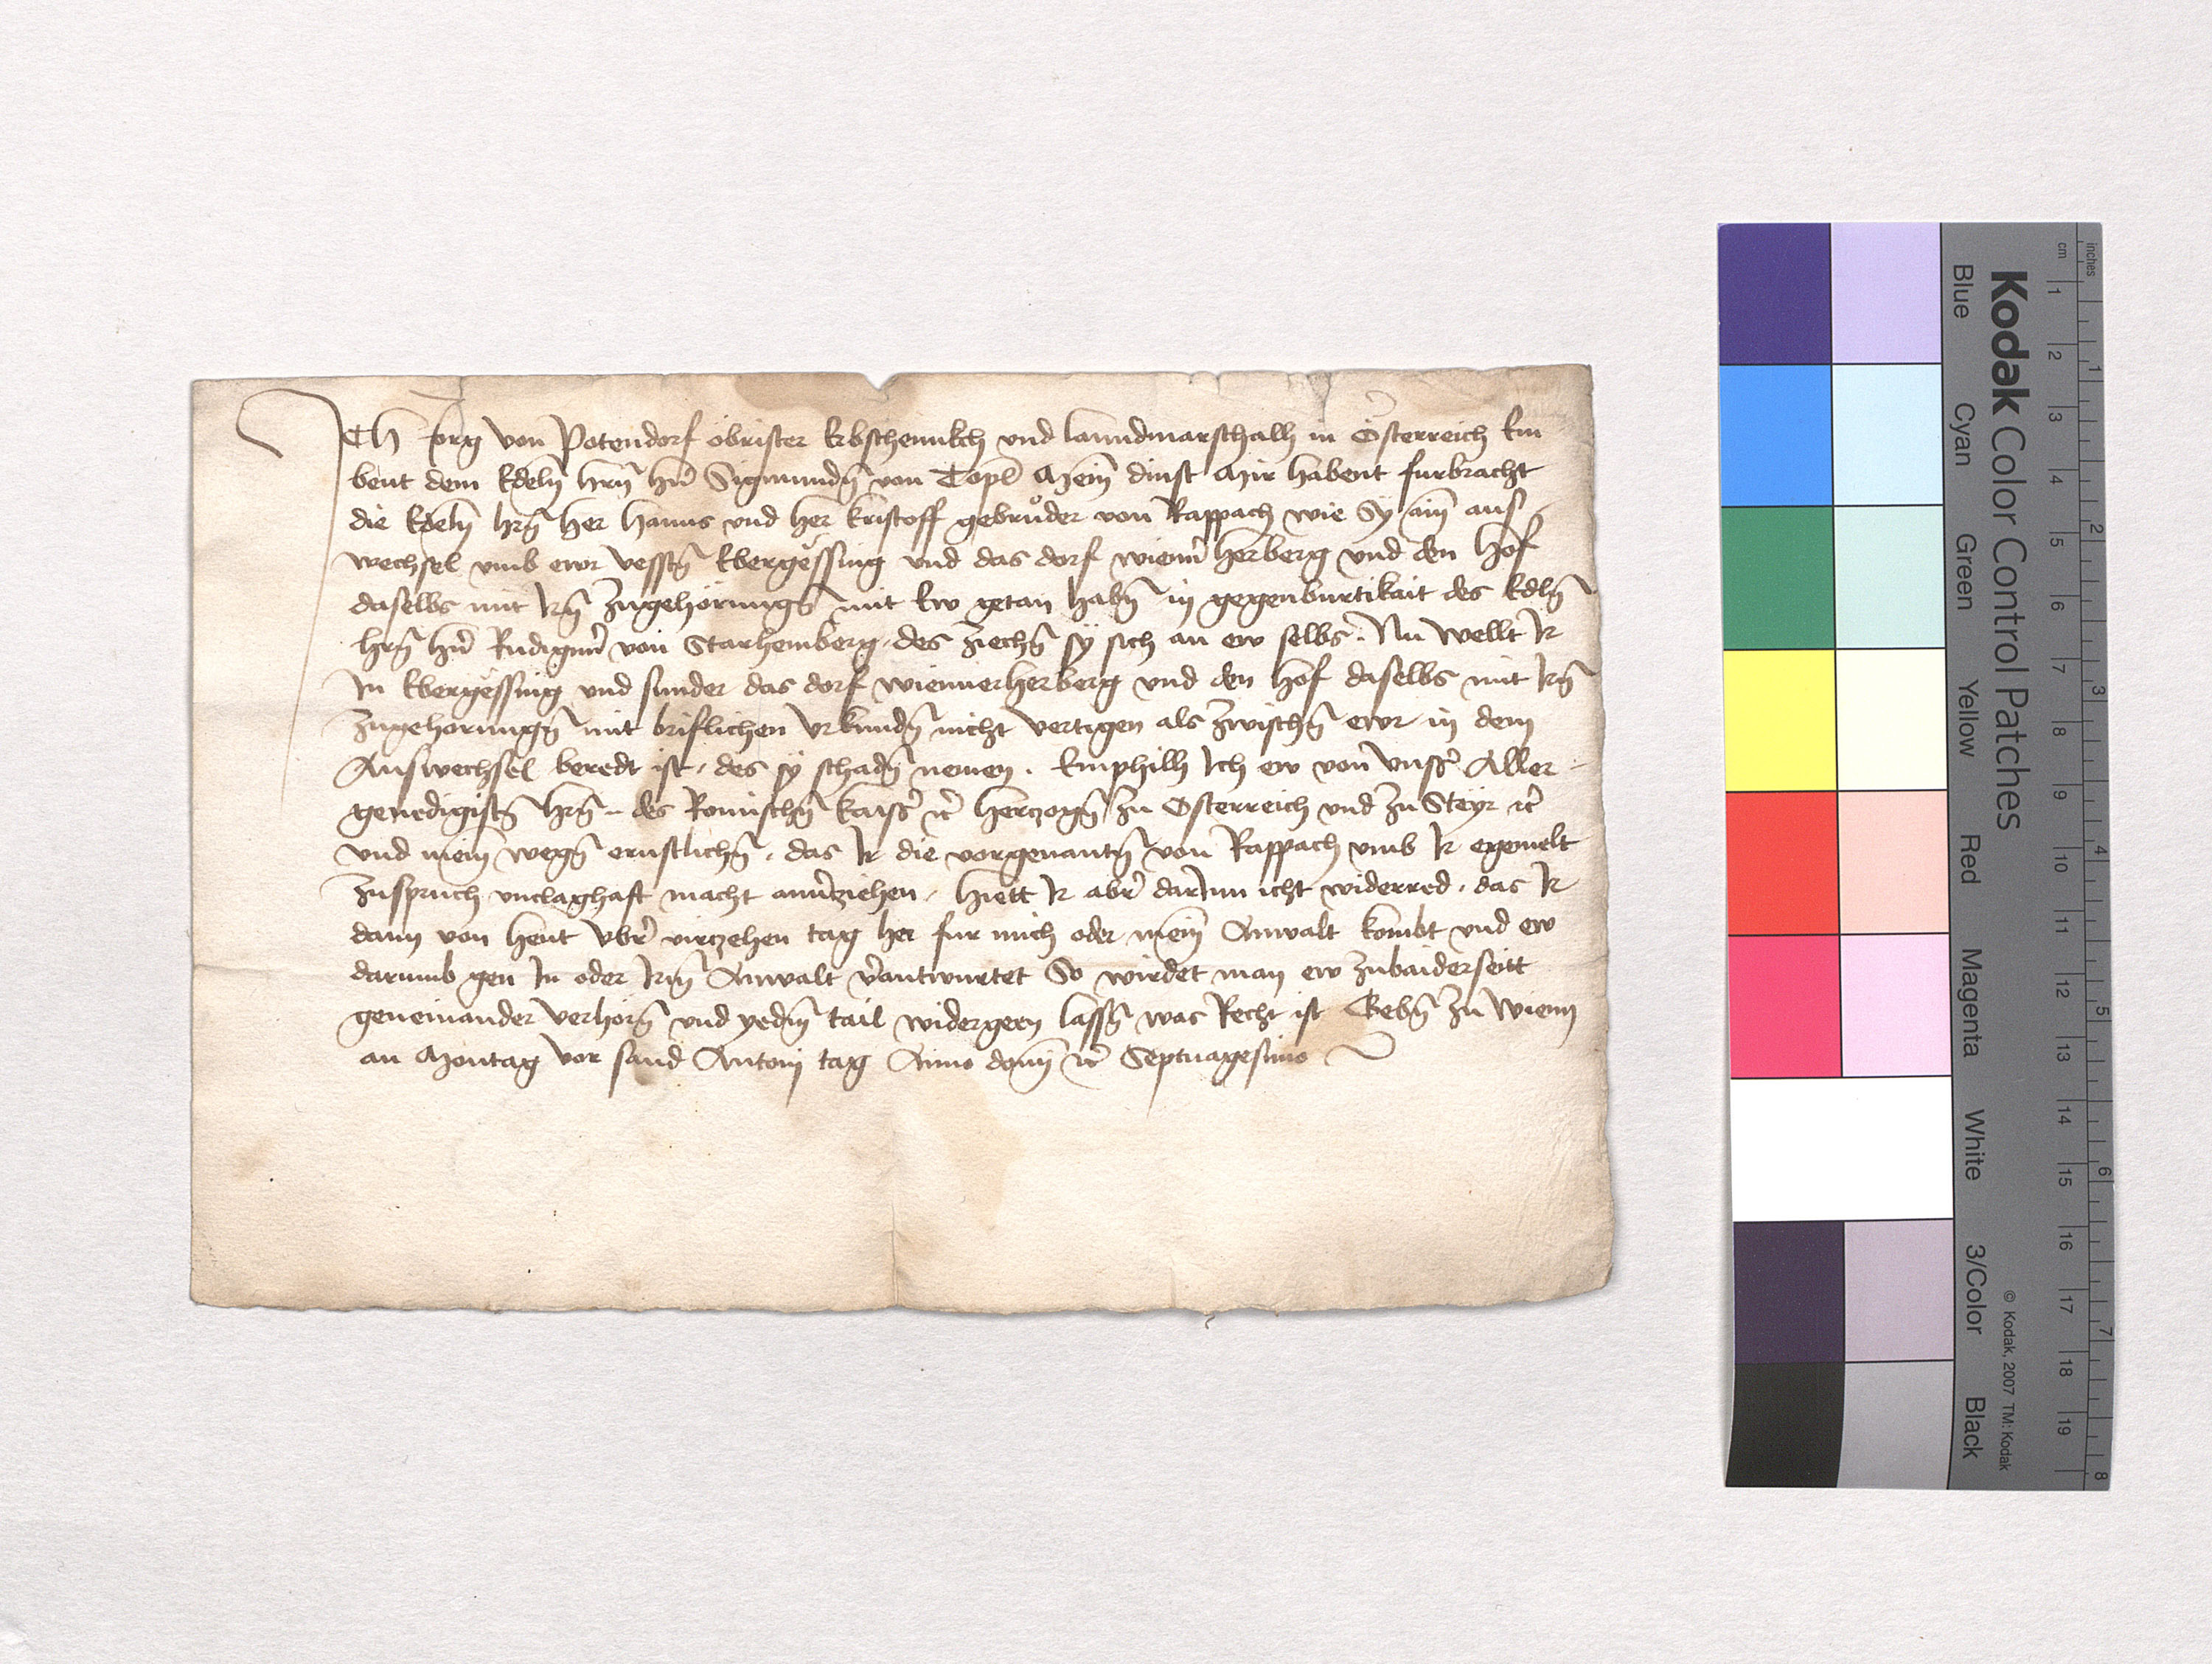 Ich Jorg von Potendorf obrister Erbschennkch vnd lanndmarschalh in Österreich Em
beut dem Edeln hrn hn Sigmundn von Topl Mein dinst Mir habent furbracht
die Edeln hrn her Hanns vnd her Kristoff gebrůder von Rappach wie Sy ain aus
wechsel vmb ewr vesstn Ebergessing vnd das dorf wienn herberg vnd den Hof
daselbs mit Irn Zugehörungn mit Ew getan habn in gegenburtikait des Edln
hrn hn Rudigern von Starhemberg. des ziechn sy sich an ew selbs. Nu wellt Ir
In Ebergessing vnd sunder das dorf wiennerherberg vnd den Hof daselbs mit Irn
Zugehorungn mit briflichen Vrkundn nicht vertigen als zwischn ewr in dem
Auswechsel beredt ist. des sy schadn nemen. Emphilh Ich ew von vnss Aller
genedigistn hrn des Romischn kaiss etc Herczogn zu Osterreich vnd zu Steyr etc
vnd mein wegn ernstlichn. das Ir die vorgenantn von Rappach vmb Ir egemelt
Zuspruch vnclaghaft macht anuerziehen. Hiett Ir aber darInn icht widerred. das Ir
dann von heut vber virczehen tag her fur mich oder mein Anwalt kombt vnd ew
darumb gen In oder Irm Anwalt verantwurtet So wirdet man ew zubaiderseitt
geneinander verhorn vnd yedm tail widergeen lassn was Recht ist Gebn zu Wienn
an Montag vor sand Antoni tag Anno domi etc Septuagesimo
Kodak Color Control Patches
Blue Cyan Green Yellow Red Magenta White 3/Color Black
© Kodak, 2007 TM: Kodak
inches 1 2 3 4 5 6 7 8
cm 1 2 3 4 5 6 7 8 9 10 11 12 13 14 15 16 17 18 19